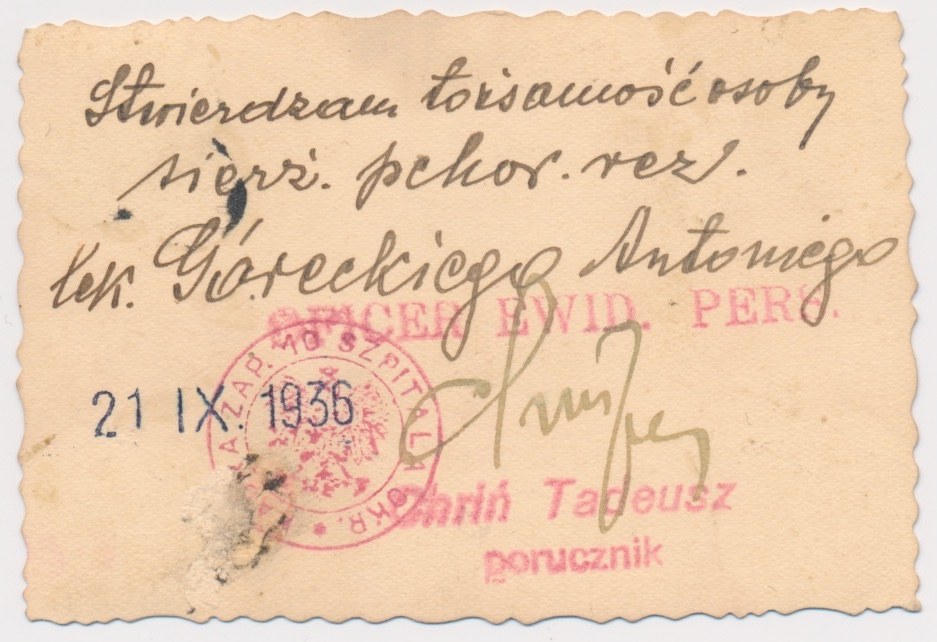 Stwierdzam tożsamość osoby
sierż. pchor. rez.
lek. Góreckiego Antoniego
OFICER EWID. PERS.
ZAP. 10 SZPITALA OKR. *
21 IX. 1936
Tadeusz
porucznik